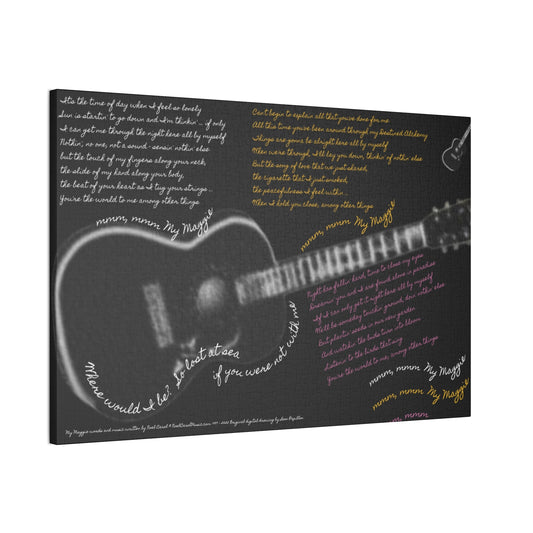 It's the time of day when I feel so lonely
Sun is startin' to go down and I'm thinkin'... if only
I can get me through the night here all by myself
Nothin', no one, not a sound - sensin' nothin' else
but the touch of my fingers along your neck,
the slide of my hand along your body,
the beat of your heart as I tug your strings...
You're the world to me among other things
mmm, mmm My Maggie
Can't begin to explain all that you've done for me
All this time you've been around through my Destined Alchemy
Things are gonna be alright here all by myself
When we're through, I'll lay you down, thinkin' of nothin' else
But the song of love that we just shared,
the cigarette that I just smoked,
the peacefulness I feel within...
When I hold you close, among other things
mmm, mmm My Maggie
Night has fallin' hard, time to close my eyes
Dreamin' you and I are found alone in paradise
If I can only get it right here all by myself
We'll be someday touchin' ground, doin' nothin' else
But plantin' seeds in our new garden
And watchin' the buds turn into bloom
Listenin' to the birds that sing
You're the world to me, among other things
mmm, mmm My Maggie
mmm, mmm My Maggie
mmm, mmm
Where would I be? So lost at sea
if you were not with me
My Maggie words and music written by
Original digital drawing by